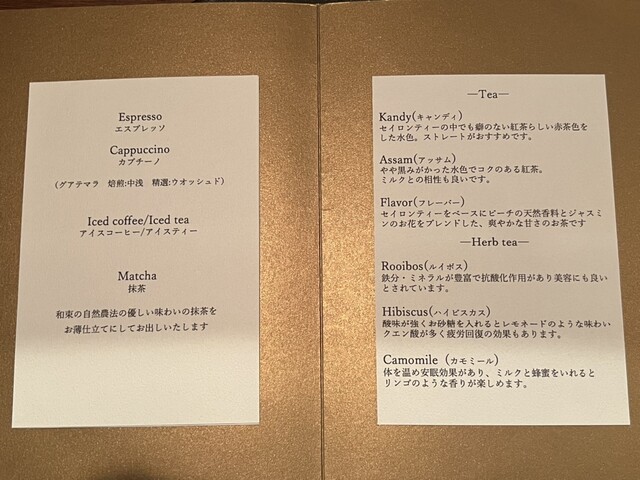 Espresso
エスプレッソ
Cappuccino
カプチーノ
(グアテマラ　焙煎:中浅　精選:ウオッシュド)
Iced coffee/Iced tea
アイスコーヒー/アイスティー
Matcha
抹茶
和束の自然農法の優しい味わいの抹茶を
お薄仕立てにしてお出しいたします
—Tea—
Kandy(キャンディ)
セイロンティーの中でも癖のない紅茶らしい赤茶色を
した水色。ストレートがおすすめです。
Assam(アッサム)
やや黒みがかった水色でコクのある紅茶。
ミルクとの相性も良いです。
Flavor(フレーバー)
セイロンティーをベースにピーチの天然香料とジャスミ
ンのお花をブレンドした、爽やかな甘さのお茶です
—Herb tea—
Rooibos(ルイボス)
鉄分・ミネラルが豊富で抗酸化作用があり美容にも良い
とされています。
Hibiscus(ハイビスカス)
酸味が強くお砂糖を入れるとレモネードのような味わい
クエン酸が多く疲労回復の効果もあります。
Camomile (カモミール)
体を温め安眠効果があり、ミルクと蜂蜜をいれると
リンゴのような香りが楽しめます。